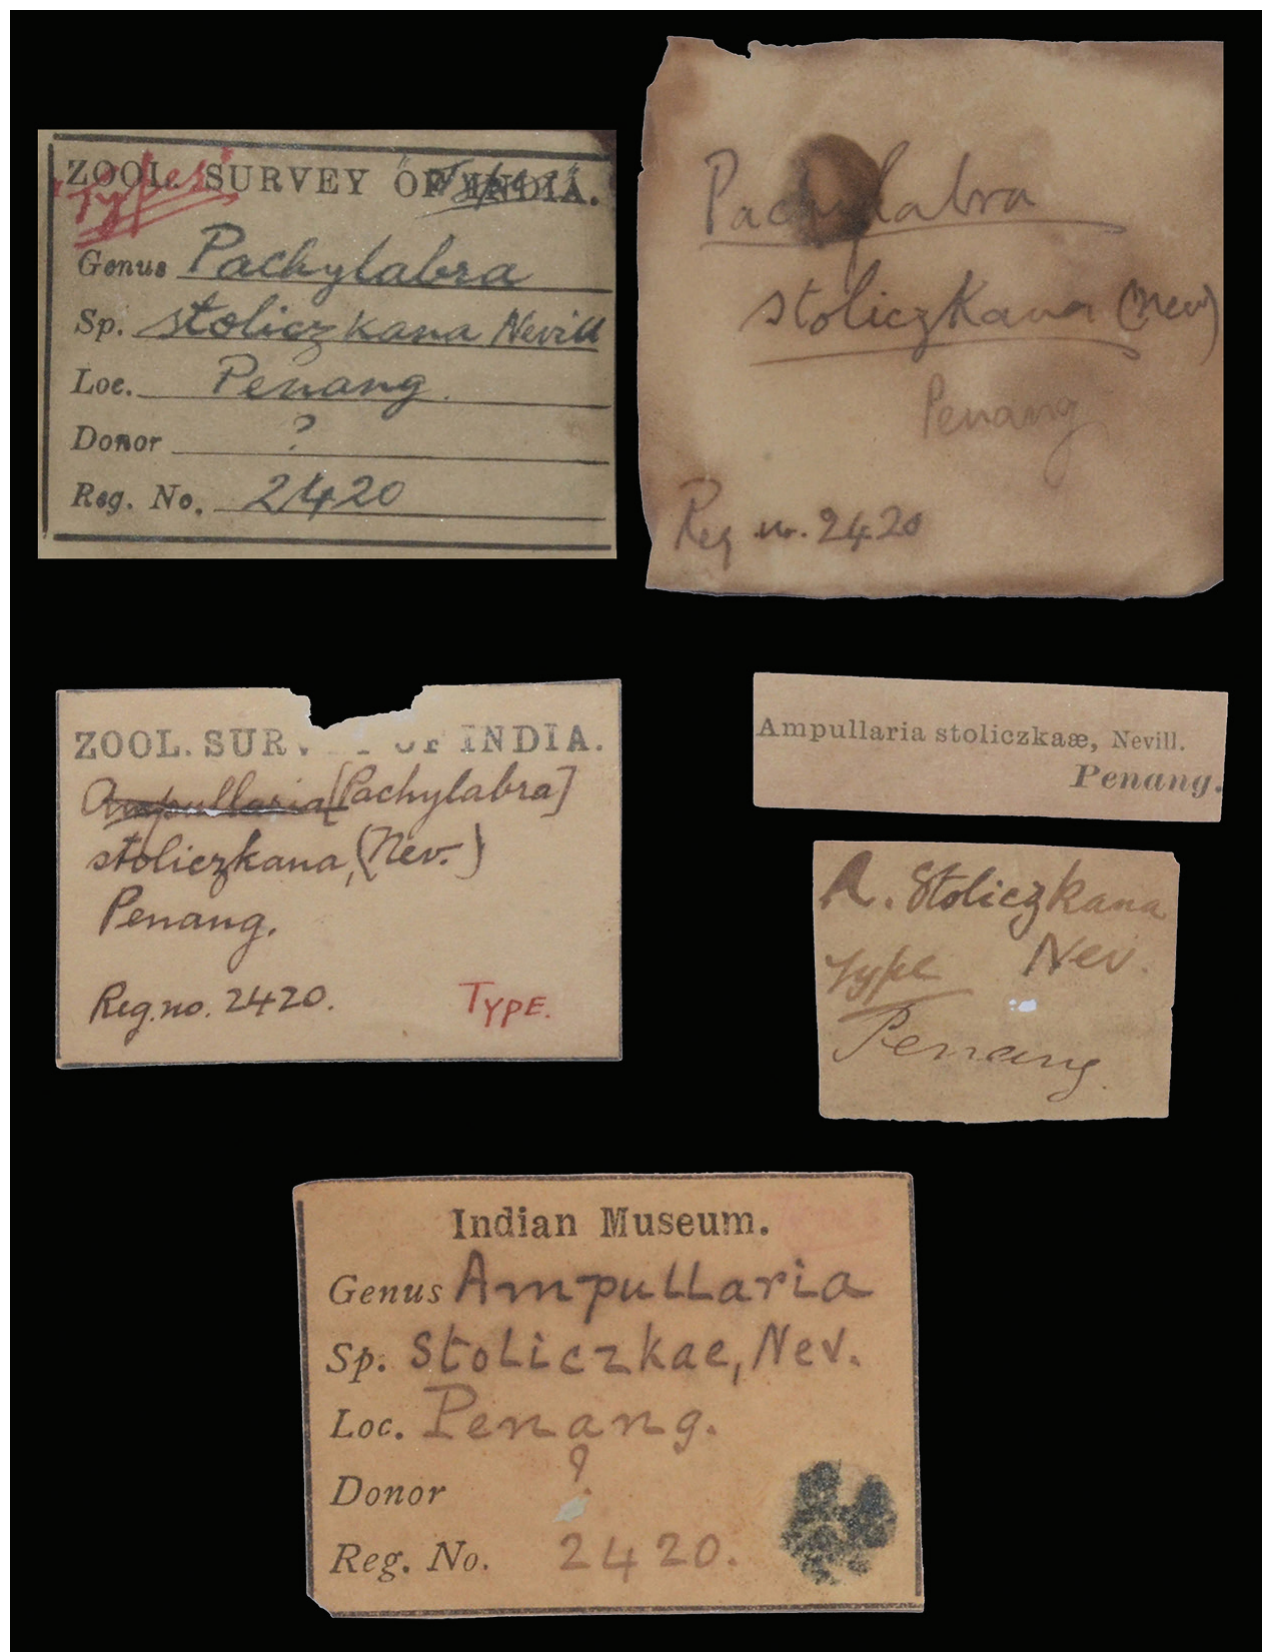 ZOOL. SURVEY OF INDIA.
"Types"
"Types"
Genus Pachylabra
Sp. stoliczkana Nevill
Loc. Penang.
Donor ?
Reg. No. 2420
Pachylabra
stoliczkana (Nev)
Penang
Reg nr. 2420
ZOOL. SURV Y OF INDIA.
Ampullaria [Pachylabra]
stoliczkana, (Nev.)
Penang.
Reg. no. 2420. TYPE.
Ampullaria stoliczkaæ, Nevill.
Penang.
A. Stoliczkana
Nev.
Type
Penang.
Indian Museum.
Types
Genus Ampullaria
Sp. Stoliczkae, Nev.
Loc. Penang.
Donor ?
Reg. No. 2420.